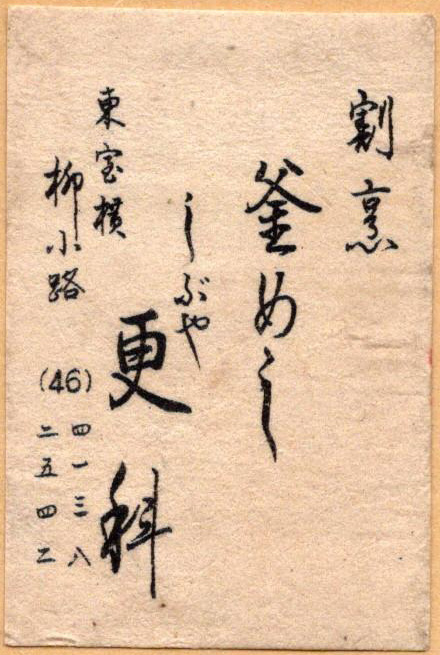 割烹
釜めし
しぶや
更科
東宝横
柳小路
(46)
四一三八
二五四二